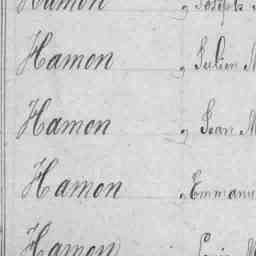 Hamon, Joseph
Hamon, Julien M
Hamon, Jean M
Hamon, Emmanu
Hamon